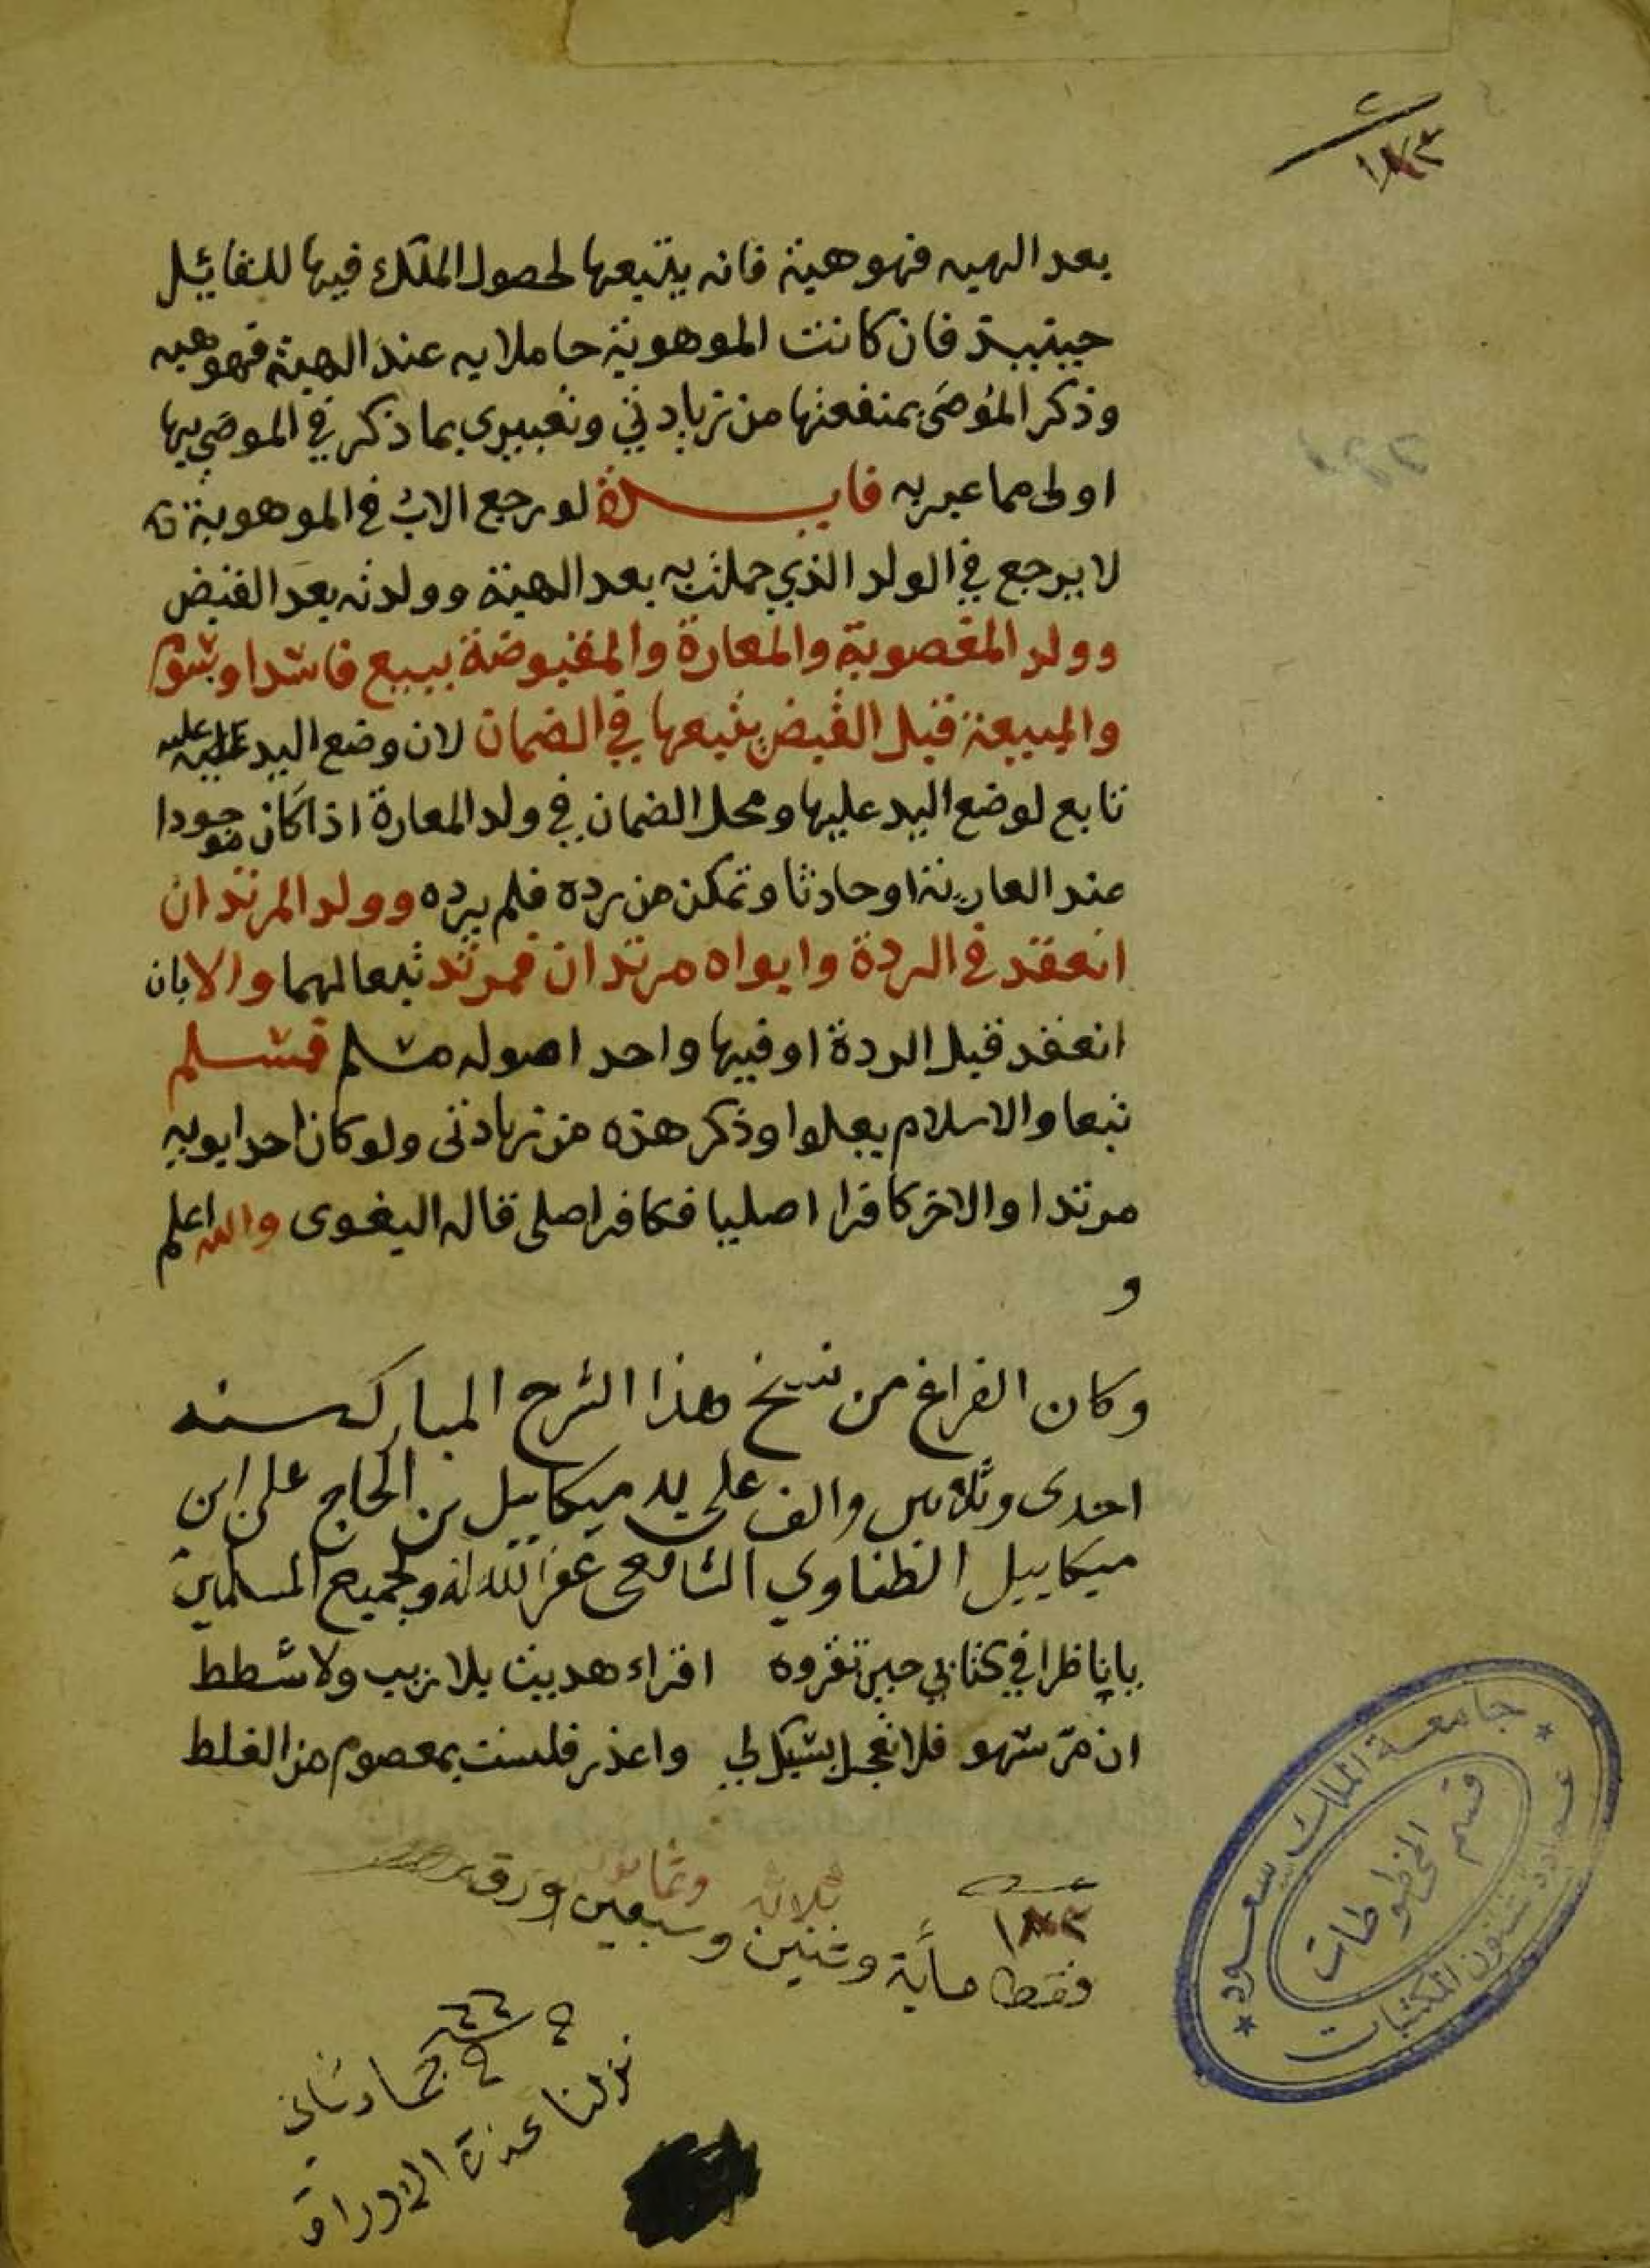 ١٨٣
بعد الهبه فهو هبة فانه يتبعها لحصول الملك فيها للقائل
حينيذ فان كانت الموهوبة حاملا به عند الهبة فهو هبه
وذكر الموصَى بمنفعتها من زيادتي وتعبيري بما ذكر في الموصي بها
اولى مما عبر به فايدة لو رجع الاب في الموهوبة
لا يرجع في الولد الذي حملت به بعد الهبة وولدته بعد القبض
وولد المغصوبة والمعارة والمقبوضة ببيع فاسد او بسوم
والمبيعة قبل القبض يتبعها في الضمان لان وضع اليد عليه
تابع لوضع اليد عليها ومحل الضمان في ولد المعارة اذا كان موجودا
عند العارية او حادثا وتمكن من رده فلم يرده وولد المرتد ان
انعقد في الردة وابواه مرتدان فمرتد تبعا لهما والا بان
انعقد قبل الردة او فيها واحد اصوله مسلم فمسلم
تبعا والاسلام يعلوا وذكر هذه من زيادتى ولو كان احد ابويه
مرتدا والاخر كافرا اصليا فكافر اصلى قاله البغوى والله اعلم
و
وكان الفراغ من نسخ هذا الشرح المبارك سنه
احدى وثلاثين والف على يد ميكاييل بن الحاج على ابن
ميكاييل الطناوي الشافعى غفر الله له ولجميع المسلمين
يا ناظرا في كتابي حين تقروه اقراء هديت بلا ريب ولا شطط
ان مرّ سهو فلا تعجل بسبك لي واعذر فلست بمعصوم من الغلط
ثلاثة وثمانون
١٨٣
فقط ماية وثنين وسبعين ورقه
جماد ثاني
نزلنا عزة الاوراق
جامعة الملك سعود
قسم المخطوطات
عمادة شئون المكتبات